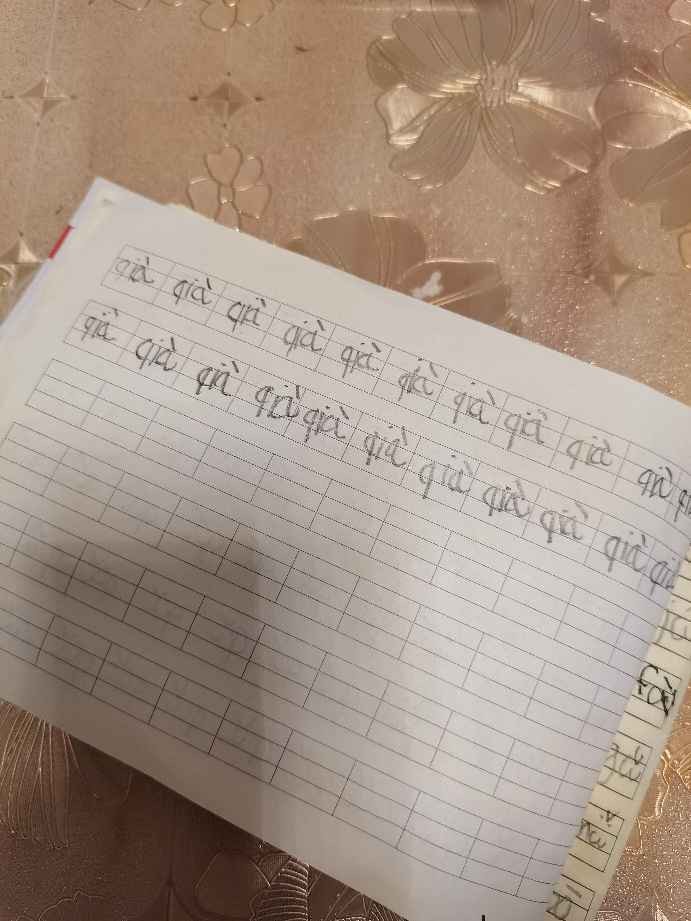 qià qià qià qià qià qià qià qià qià qià
qià qià qià qià qià qià qià qià qià qià